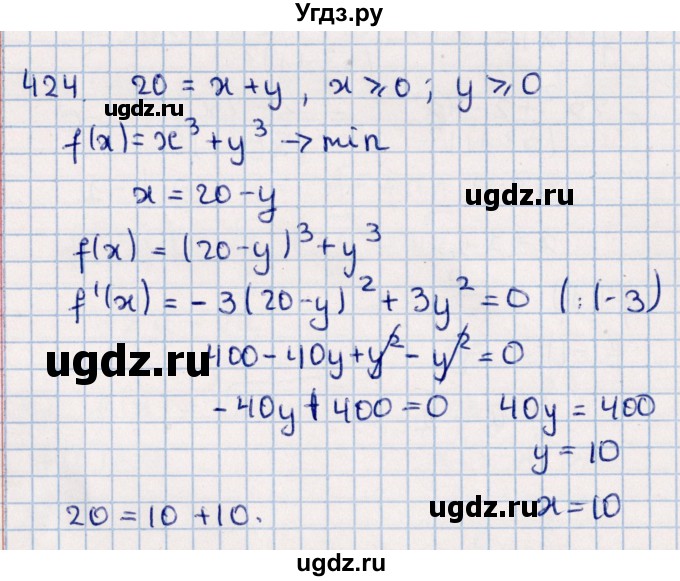 Угдз.ру
424. 20 = x + y, x ⩾ 0; y ⩾ 0
ugdz.ru
f(x) = x³ + y³ → min
x = 20 - y
ugdz.ru
f(x) = (20 - y)³ + y³
f'(x) = -3(20 - y)² + 3y² = 0 (:(-3)
ugdz.ru
400 - 40y + y² - y² = 0
-40y + 400 = 0 40y = 400
y = 10
x = 10
ugdz.ru
20 = 10 + 10.
ugdz.ru